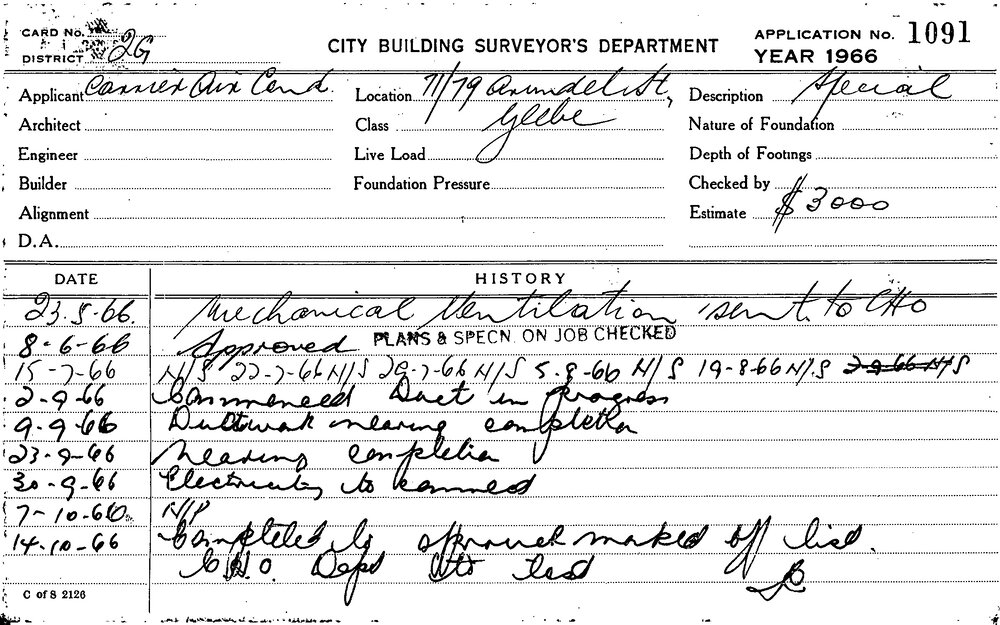 CARD No.
DISTRICT 2G
CITY BUILDING SURVEYOR'S DEPARTMENT
APPLICATION No. 1091
YEAR 1966
Applicant Carrier Air Cond. Location 71/79 Arundel St, Description Special
Architect Class Glebe Nature of Foundation
Engineer Live Load Depth of Footings
Builder Foundation Pressure Checked by
Alignment Estimate $3000
D.A.
DATE HISTORY
23.5.66. Mechanical Ventilation sent to CHO
8-6-66 Approved PLANS & SPECN. ON JOB CHECKED
15-7-66 N/S 22-7-66 N/S 29-7-66 N/S 5-8-66 N/S 19-8-66 N/S 2-9-66 N/S
2-9-66 Commenced Duct in progress
9-9-66 Ductwork nearing completion
23-9-66 Nearing completion
30-9-66 Electricity to connect
7-10-66 N/P
14-10-66 Completed marked off list.
C.H.O. Dept to test
C of S 2126